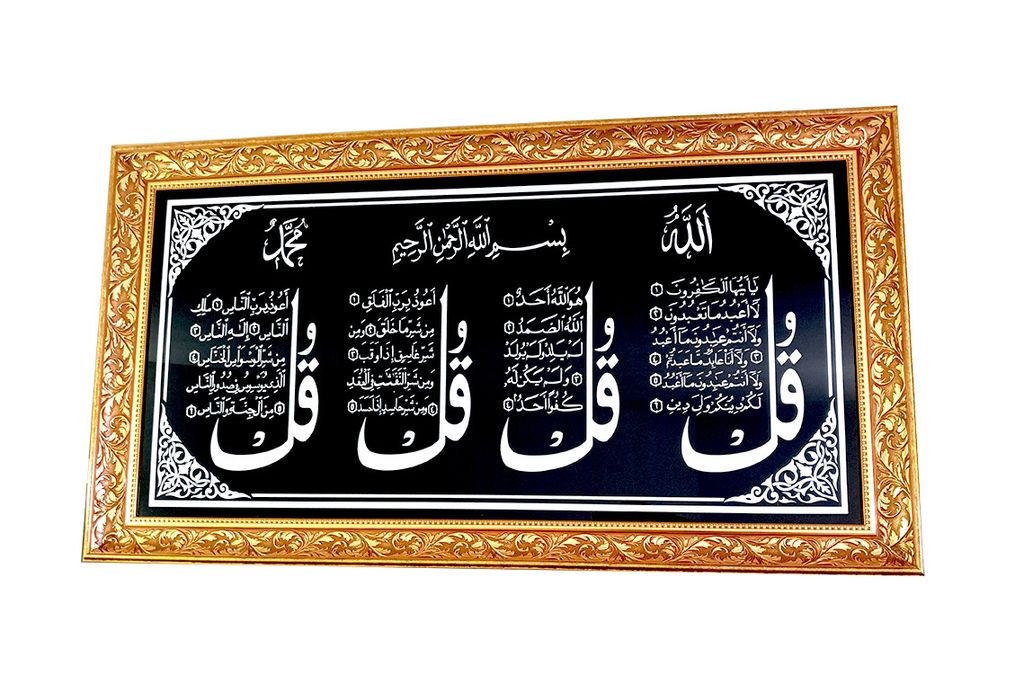 ٱللَّهُ
بِسْمِ ٱللَّهِ ٱلرَّحْمَٰنِ ٱلرَّحِيمِ
مُحَمَّد
قُلْ
يَا أَيُّهَا ٱلْكَافِرُونَ ١
لَا أَعْبُدُ مَا تَعْبُدُونَ ٢
وَلَا أَنْتُمْ عَابِدُونَ مَا أَعْبُدُ
٣ وَلَا أَنَا عَابِدٌ مَا عَبَدْتُمْ ٤
وَلَا أَنْتُمْ عَابِدُونَ مَا أَعْبُدُ ٥
لَكُمْ دِينُكُمْ وَلِيَ دِينِ ٦
قُلْ
هُوَ ٱللَّهُ أَحَدٌ ١
ٱللَّهُ ٱلصَّمَدُ ٢
لَمْ يَلِدْ وَلَمْ يُولَدْ
٣ وَلَمْ يَكُنْ لَهُ
كُفُوًا أَحَدٌ ٤
قُلْ
أَعُوذُ بِرَبِّ ٱلْفَلَقِ ١
مِنْ شَرِّ مَا خَلَقَ ٢ وَمِنْ
شَرِّ غَاسِقٍ إِذَا وَقَبَ ٣
وَمِنْ شَرِّ ٱلنَّفَّاثَاتِ فِي ٱلْعُقَدِ
٤ وَمِنْ شَرِّ حَاسِدٍ إِذَا حَسَدَ ٥
قُلْ
أَعُوذُ بِرَبِّ ٱلنَّاسِ ١ مَلِكِ
ٱلنَّاسِ ٢ إِلَٰهِ ٱلنَّاسِ ٣
مِنْ شَرِّ ٱلْوَسْوَاسِ ٱلْخَنَّاسِ ٤
ٱلَّذِي يُوَسْوِسُ فِي صُدُورِ ٱلنَّاسِ
٥ مِنَ ٱلْجِنَّةِ وَٱلنَّاسِ ٦